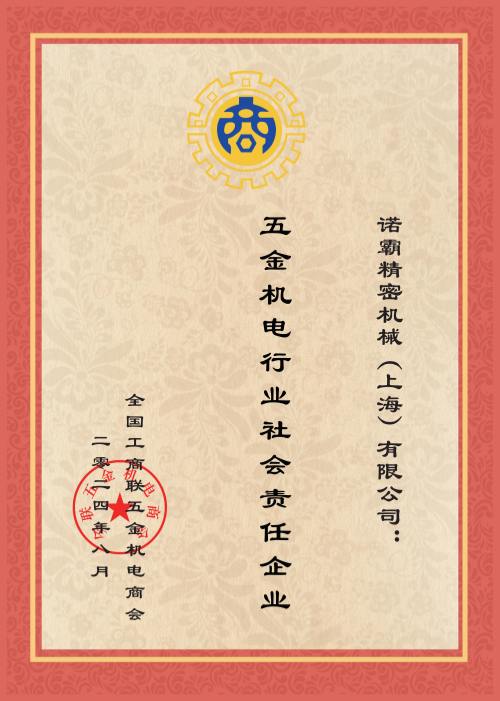 商
诺霸精密机械（上海）有限公司：
五金机电行业社会责任企业
全国工商联五金机电商会
二零二四年八月